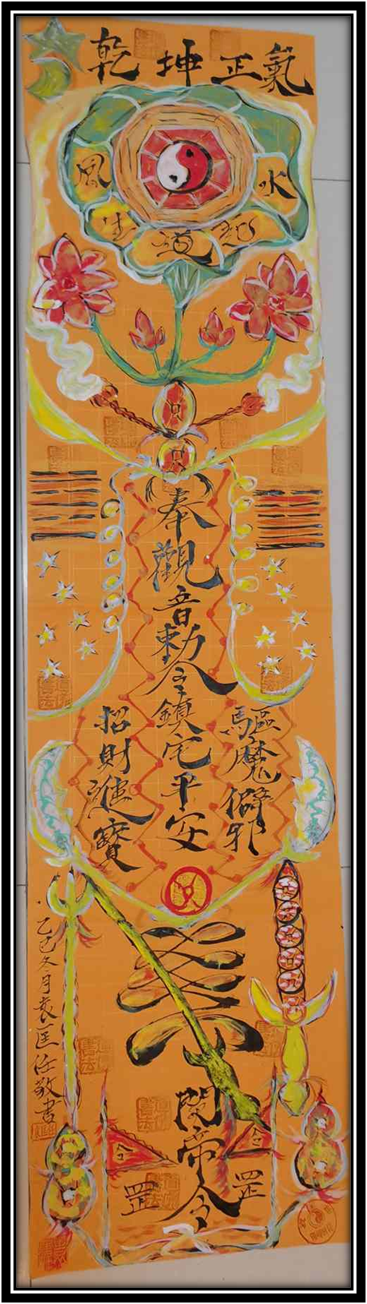 乾坤正氣
風生道起水
奉觀音勅令鎮宅平安
驅魔僻邪
招財進寶
関帝令
令
令
罡
罡
乙巳冬月袁匡任敬書